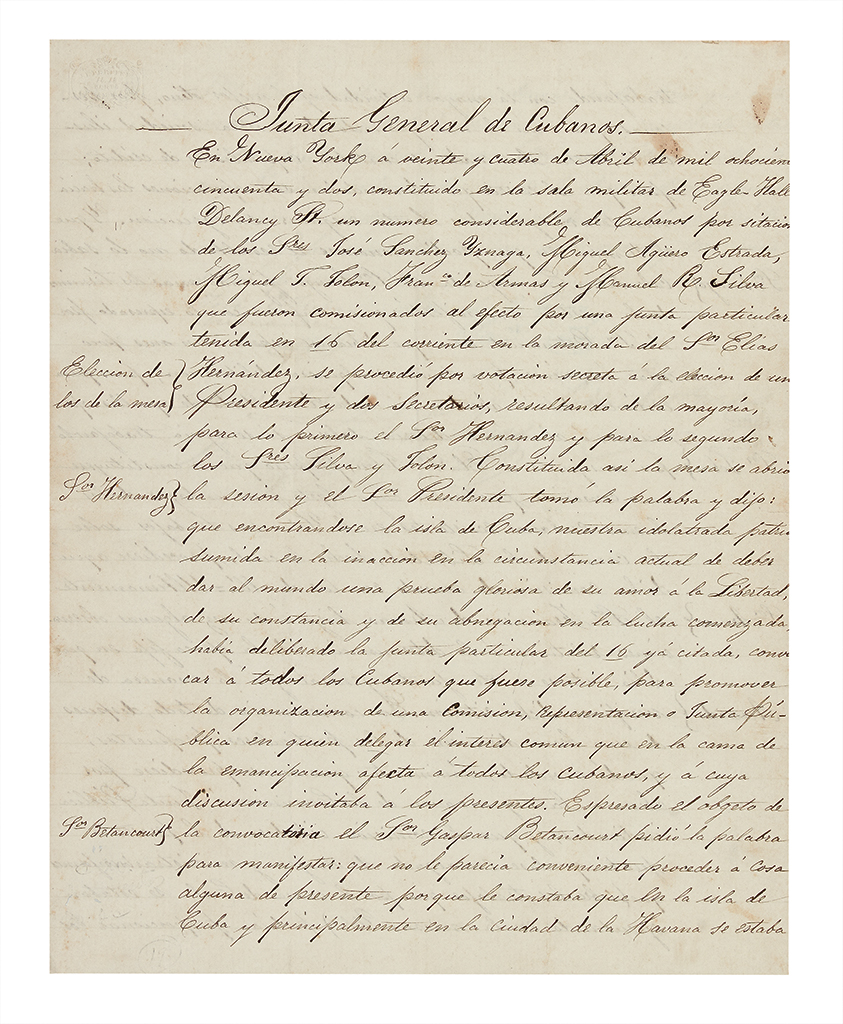 Junta General de Cubanos.
En Nueva York á veinte y cuatro de Abril de mil ochocien
cincuenta y dos, constituido en la sala militar de Eagle-Hall
Delancy St. un numero considerable de Cubanos por sitacion
de los Sres José Sanchez Yznaga, Miguel Agüero Estrada,
Miguel T. Tolon, Franco de Armas y Manuel R. Silva
que fueron comisionados al efecto por una junta particular
tenida en 16 del corriente en la morada del Sor Elías
Eleccion de
los de la mesa
Hernández, se procedió por votacion secreta á la eleccion de un
Presidente y dos Secretarios, resultando de la mayoría,
para lo primero el Sor Hernandez y para lo segundo
los Sres Silva y Tolon. Constituida asi la mesa se abrio
Sor Hernandez
la sesion y el Sor Presidente tomó la palabra y dijo:
que encontrandose la isla de Cuba, nuestra idolatrada patria
sumida en la inaccion en la circunstancia actual de deber
dar al mundo una prueba gloriosa de su amor á la Libertad,
de su constancia y de su abnegacion en la lucha comenzada,
habia deliberado la junta particular del 16 yá citada, convo
car á todos los Cubanos que fuese posible, para promover
la organizacion de una Comision, representacion o Junta Pú-
blica en quien delegar el interes comun que en la causa de
la emancipacion afecta á todos los cubanos, y á cuya
discusion invitaba a los presentes. Espresado el obgeto de
Sor Betancourt
la convocatoria el Sor Gaspar Betancourt pidió la palabra
para manifestar: que no le parecia conveniente proceder á cosa
alguna de presente porque le constaba que en la isla de
Cuba y principalmente en la ciudad de la Havana se estaba